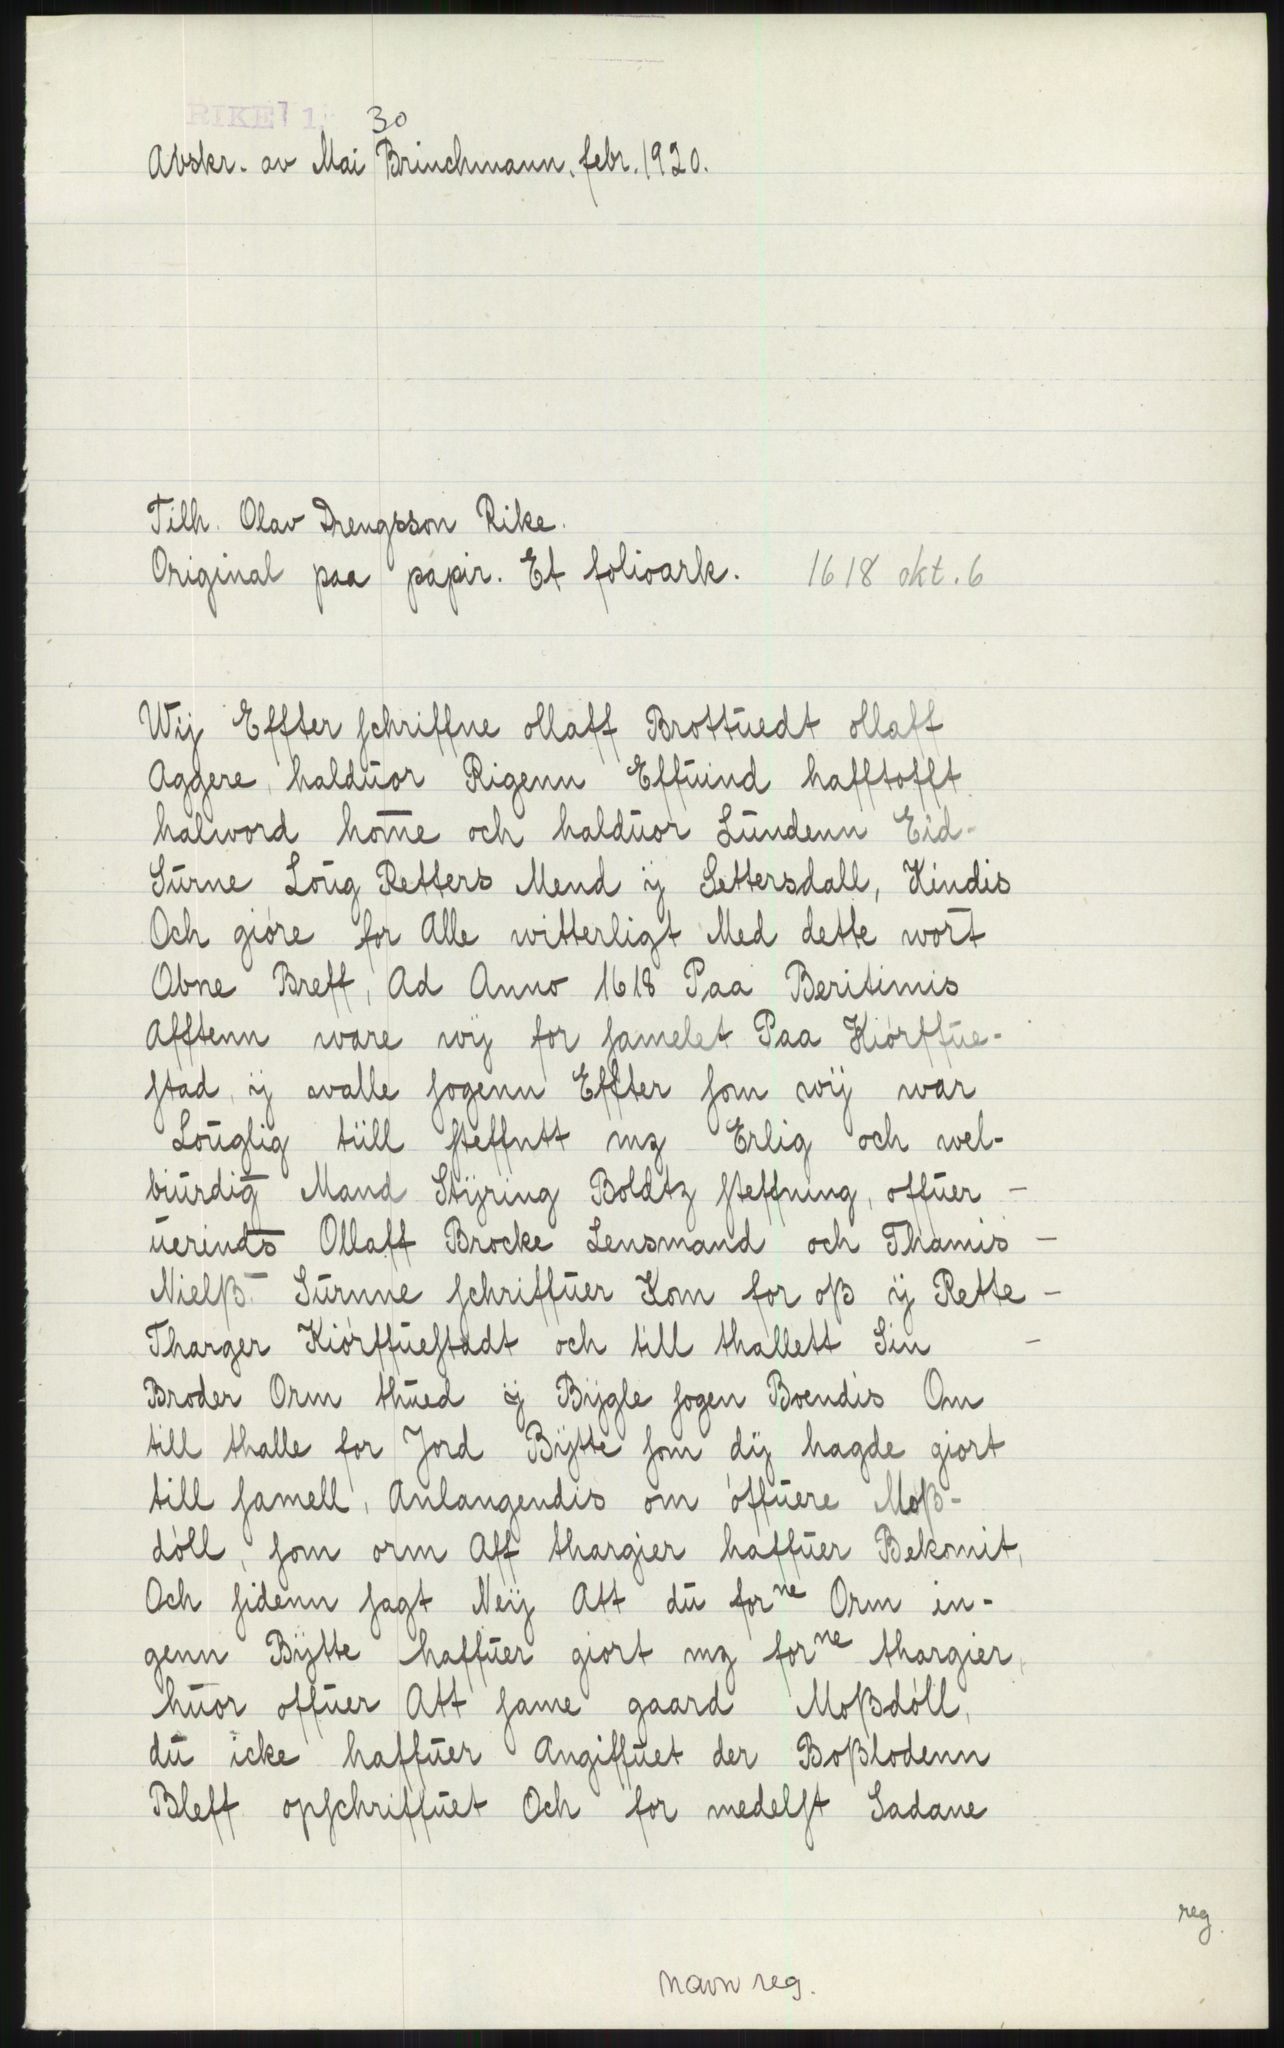 RIKE 1. 30
Avskr. av Mai Brinchmann, febr. 1920.
Tilh. Olav Drengsson Rike.
Original paa papir. Et folioark. 1618 okt. 6
Wij Effter schriffne ollaff Brottuedt ollaff
Aggere, halduor Rigenn Effuind hafftofft
halword hom̄e och halduor Lundenn Eid-
Surne Loug Retters Mend ij Settersdall, Kindis
Och giøre for Alle witterligt Med dette wort
Obne Breff, Ad Anno 1618 Paa Beritimis
Afftenn ware wij for samelet Paa Kiørffue-
stad, ij walle sogenn Effter som wij war
Louglig till steffntt mz Erlig och wel-
biurdig Mand Stijring Boldtz steffning, offuer -
uerinds Ollaff Brocke Lensmand och Thamis -
Nielß Surnne schriffuer Kom for oß ij Rette -
Tharger Kiørffuestadt och till thallett Sin -
Broder Orm thued ij Bijgle sogen Boendis Om
till thalle for Jord Bijtte som dij hagde giort
till samell, Anlangendis om øffuere Moß-
døll, som orm Aff thargier haffuer Bekomit,
Och sidenn sagt Neij Att du forne Orm in-
genn Bijtte haffuer giort mz forne thargier,
huor offuer Att same gaard Moßdøll,
du icke haffuer Angiffuet der Boßlodenn
Bleff opschriffuet Och for medelst Sadane
reg.
navn reg.